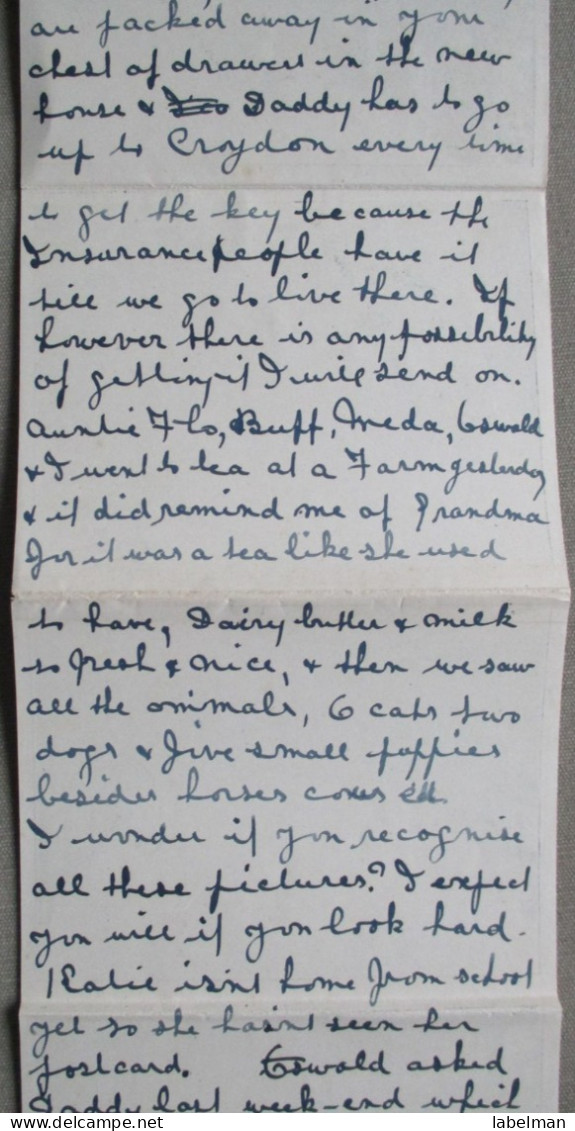 are packed away in your
chest of drawers in the new
house & Daddy has to go
up to Croydon every time
to get the key because the
Insurance people have it
till we go to live there. If
however there is any possibility
of getting it I will send on.
Auntie Flo, Buff, Meda, Oswald
& I went to tea at a Farm yesterday
& it did remind me of Grandma
for it was a tea like she used
to have, Dairy butter & milk
so fresh & nice, & then we saw
all the animals, 6 cats two
dogs & five small puppies
besides horses cows etc.
I wonder if you recognise
all these pictures? I expect
you will if you look hard.
Katie isn't home from school
yet so she hasn't seen her
postcard. Oswald asked
Daddy last week-end which
labelman